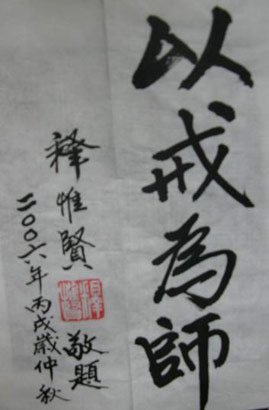 以戒為師
釋惟賢
敬題
二〇〇六年丙戌歲仲秋